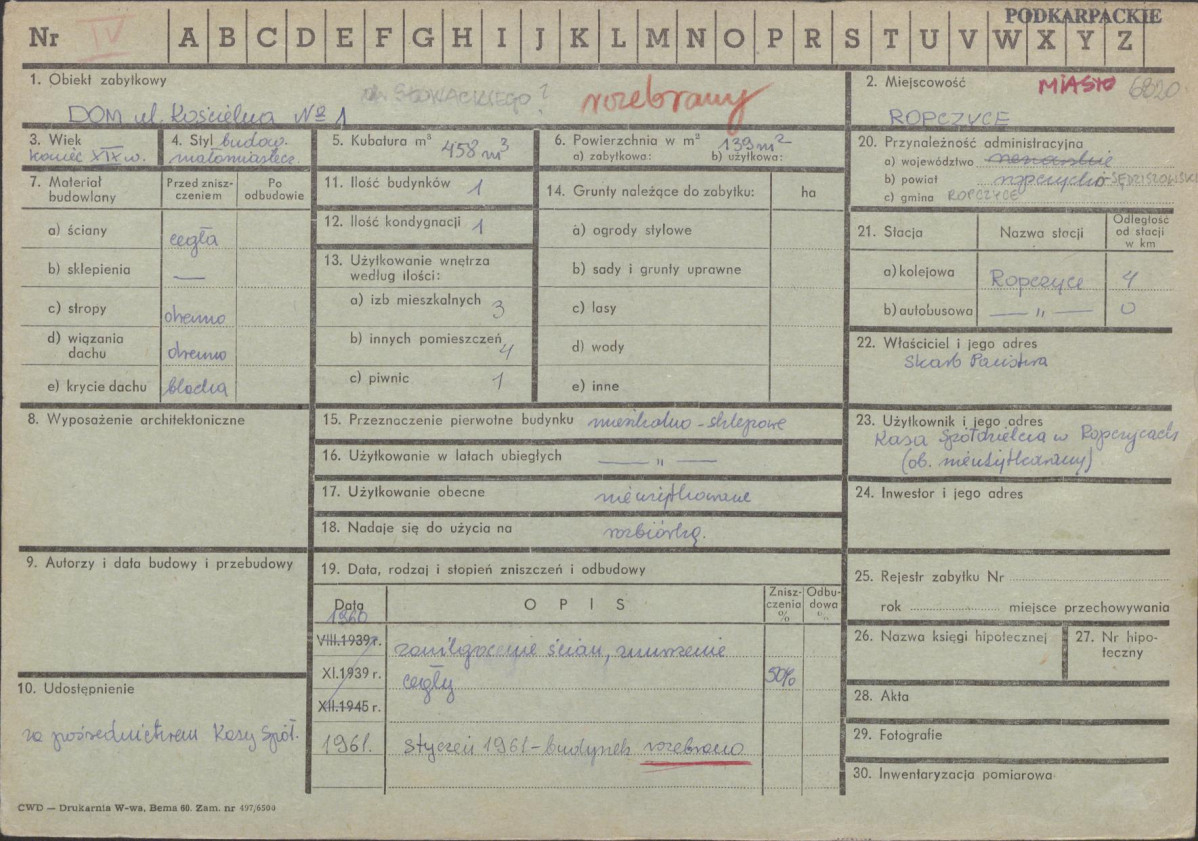 PODKARPACKIE
Nr IV A B C D E F G H I J K L M N O P R S T U V W X Y Z
1. Obiekt zabytkowy
ul. SŁOWACKIEGO?
rozebrany
DOM ul. Kościelna No 1
2. Miejscowość
MIASTO 6820
ROPCZYCE
3. Wiek
koniec XIX w.
4. Styl budow.
małomiastecz.
5. Kubatura m³
458 m³
6. Powierzchnia w m²
139 m²
a) zabytkowa: b) użytkowa:
20. Przynależność administracyjna
a) województwo
b) powiat ropczycko-SĘDZISZOWSKI
c) gmina ROPCZYCE
7. Materiał budowlany
Przed znisz-
czeniem
Po
odbudowie
a) ściany cegła
b) sklepienia —
c) stropy drewno
d) wiązania
dachu drewno
e) krycie dachu blacha
11. Ilość budynków 1
12. Ilość kondygnacji 1
13. Użytkowanie wnętrza
według ilości:
a) izb mieszkalnych 3
b) innych pomieszczeń 4
c) piwnic 1
14. Grunty należące do zabytku: ha
a) ogrody stylowe
b) sady i grunty uprawne
c) lasy
d) wody
e) inne
21. Stacja
Nazwa stacji
Odległość
od stacji
w km
a) kolejowa Ropczyce 4
b) autobusowa — „ — 0
22. Właściciel i jego adres
Skarb Państwa
8. Wyposażenie architektoniczne
15. Przeznaczenie pierwotne budynku mieszkalno-sklepowe
16. Użytkowanie w latach ubiegłych — „ —
17. Użytkowanie obecne nieużytkowane
18. Nadaje się do użycia na rozbiórkę.
23. Użytkownik i jego adres
Kasa Spółdzielcza w Ropczycach
(ob. nieużytkowany)
24. Inwestor i jego adres
9. Autorzy i data budowy i przebudowy
19. Data, rodzaj i stopień zniszczeń i odbudowy
Data
OPIS
Znisz-
czenia
%
Odbu-
dowa
%
1960
VIII.1939 r. zawilgocenie ścian, zmurszenie
XI.1939 r. cegły 50%
XII.1945 r.
1961. styczeń 1961 - budynek rozebrano
25. Rejestr zabytku Nr
rok miejsce przechowywania
26. Nazwa księgi hipotecznej
27. Nr hipo-
teczny
28. Akta
29. Fotografie
30. Inwentaryzacja pomiarowa
10. Udostępnienie
za pośrednictwem Kasy Spół.
CWD — Drukarnia W-wa, Bema 60. Zam. nr 497/6500